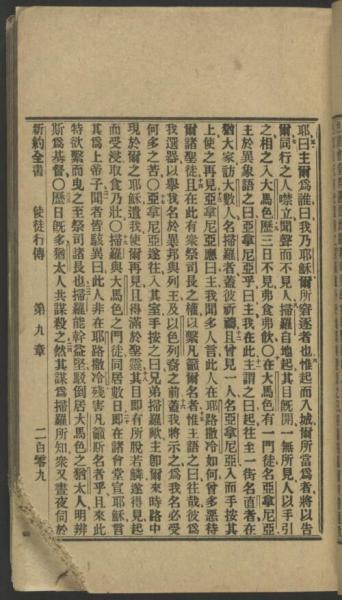 耶曰主爾爲誰曰我乃耶穌爾所窘逐者也惟起而入城爾所當爲者將以告
爾同行之人噤立聞聲而不見人掃羅自地起其目旣開一無所見人以手引
之相之入大馬色歷三日不見弗食弗飲○在大馬色有一門徒名亞拿尼亞
主於異象語之曰亞拿尼亞乎曰主我在此主謂之曰起往至一街名直者在
猶大家訪大數人名掃羅者蓋彼祈禱且曾見一人名亞拿尼亞入而手按其
上使之再見亞拿尼亞應曰主我聞多人言此人在耶路撒冷如何曾多惡待
爾諸聖徒且在此有由衆祭司長之權以繫凡籲爾名者惟主語之曰往哉彼爲
我選器以舉我名於異邦與列王及以色列裔之前蓋我將示之爲我名必受
何多之苦○亞拿尼亞遂往入其室手按之曰兄弟掃羅歟主卽爾來時路中
現於爾之耶穌遣我使爾再見且得滿於聖靈其目卽有所脫若鱗遂得見起
而受浸取食乃壯○掃羅與大馬色之門徒同居數日卽在諸會堂宣耶穌言
其爲上帝子聞者皆駭異曰此人非在耶路撒冷殘害凡籲斯名者乎且來此
特欲繫而曳之至祭司諸長也掃羅能幹益堅駁倒居大馬色之猶太人明辨
斯爲基督○歷日旣多猶太人共謀殺之然其謀爲掃羅所知衆又晝夜伺於
新約全書　使徒行傳　第九章　二百零九